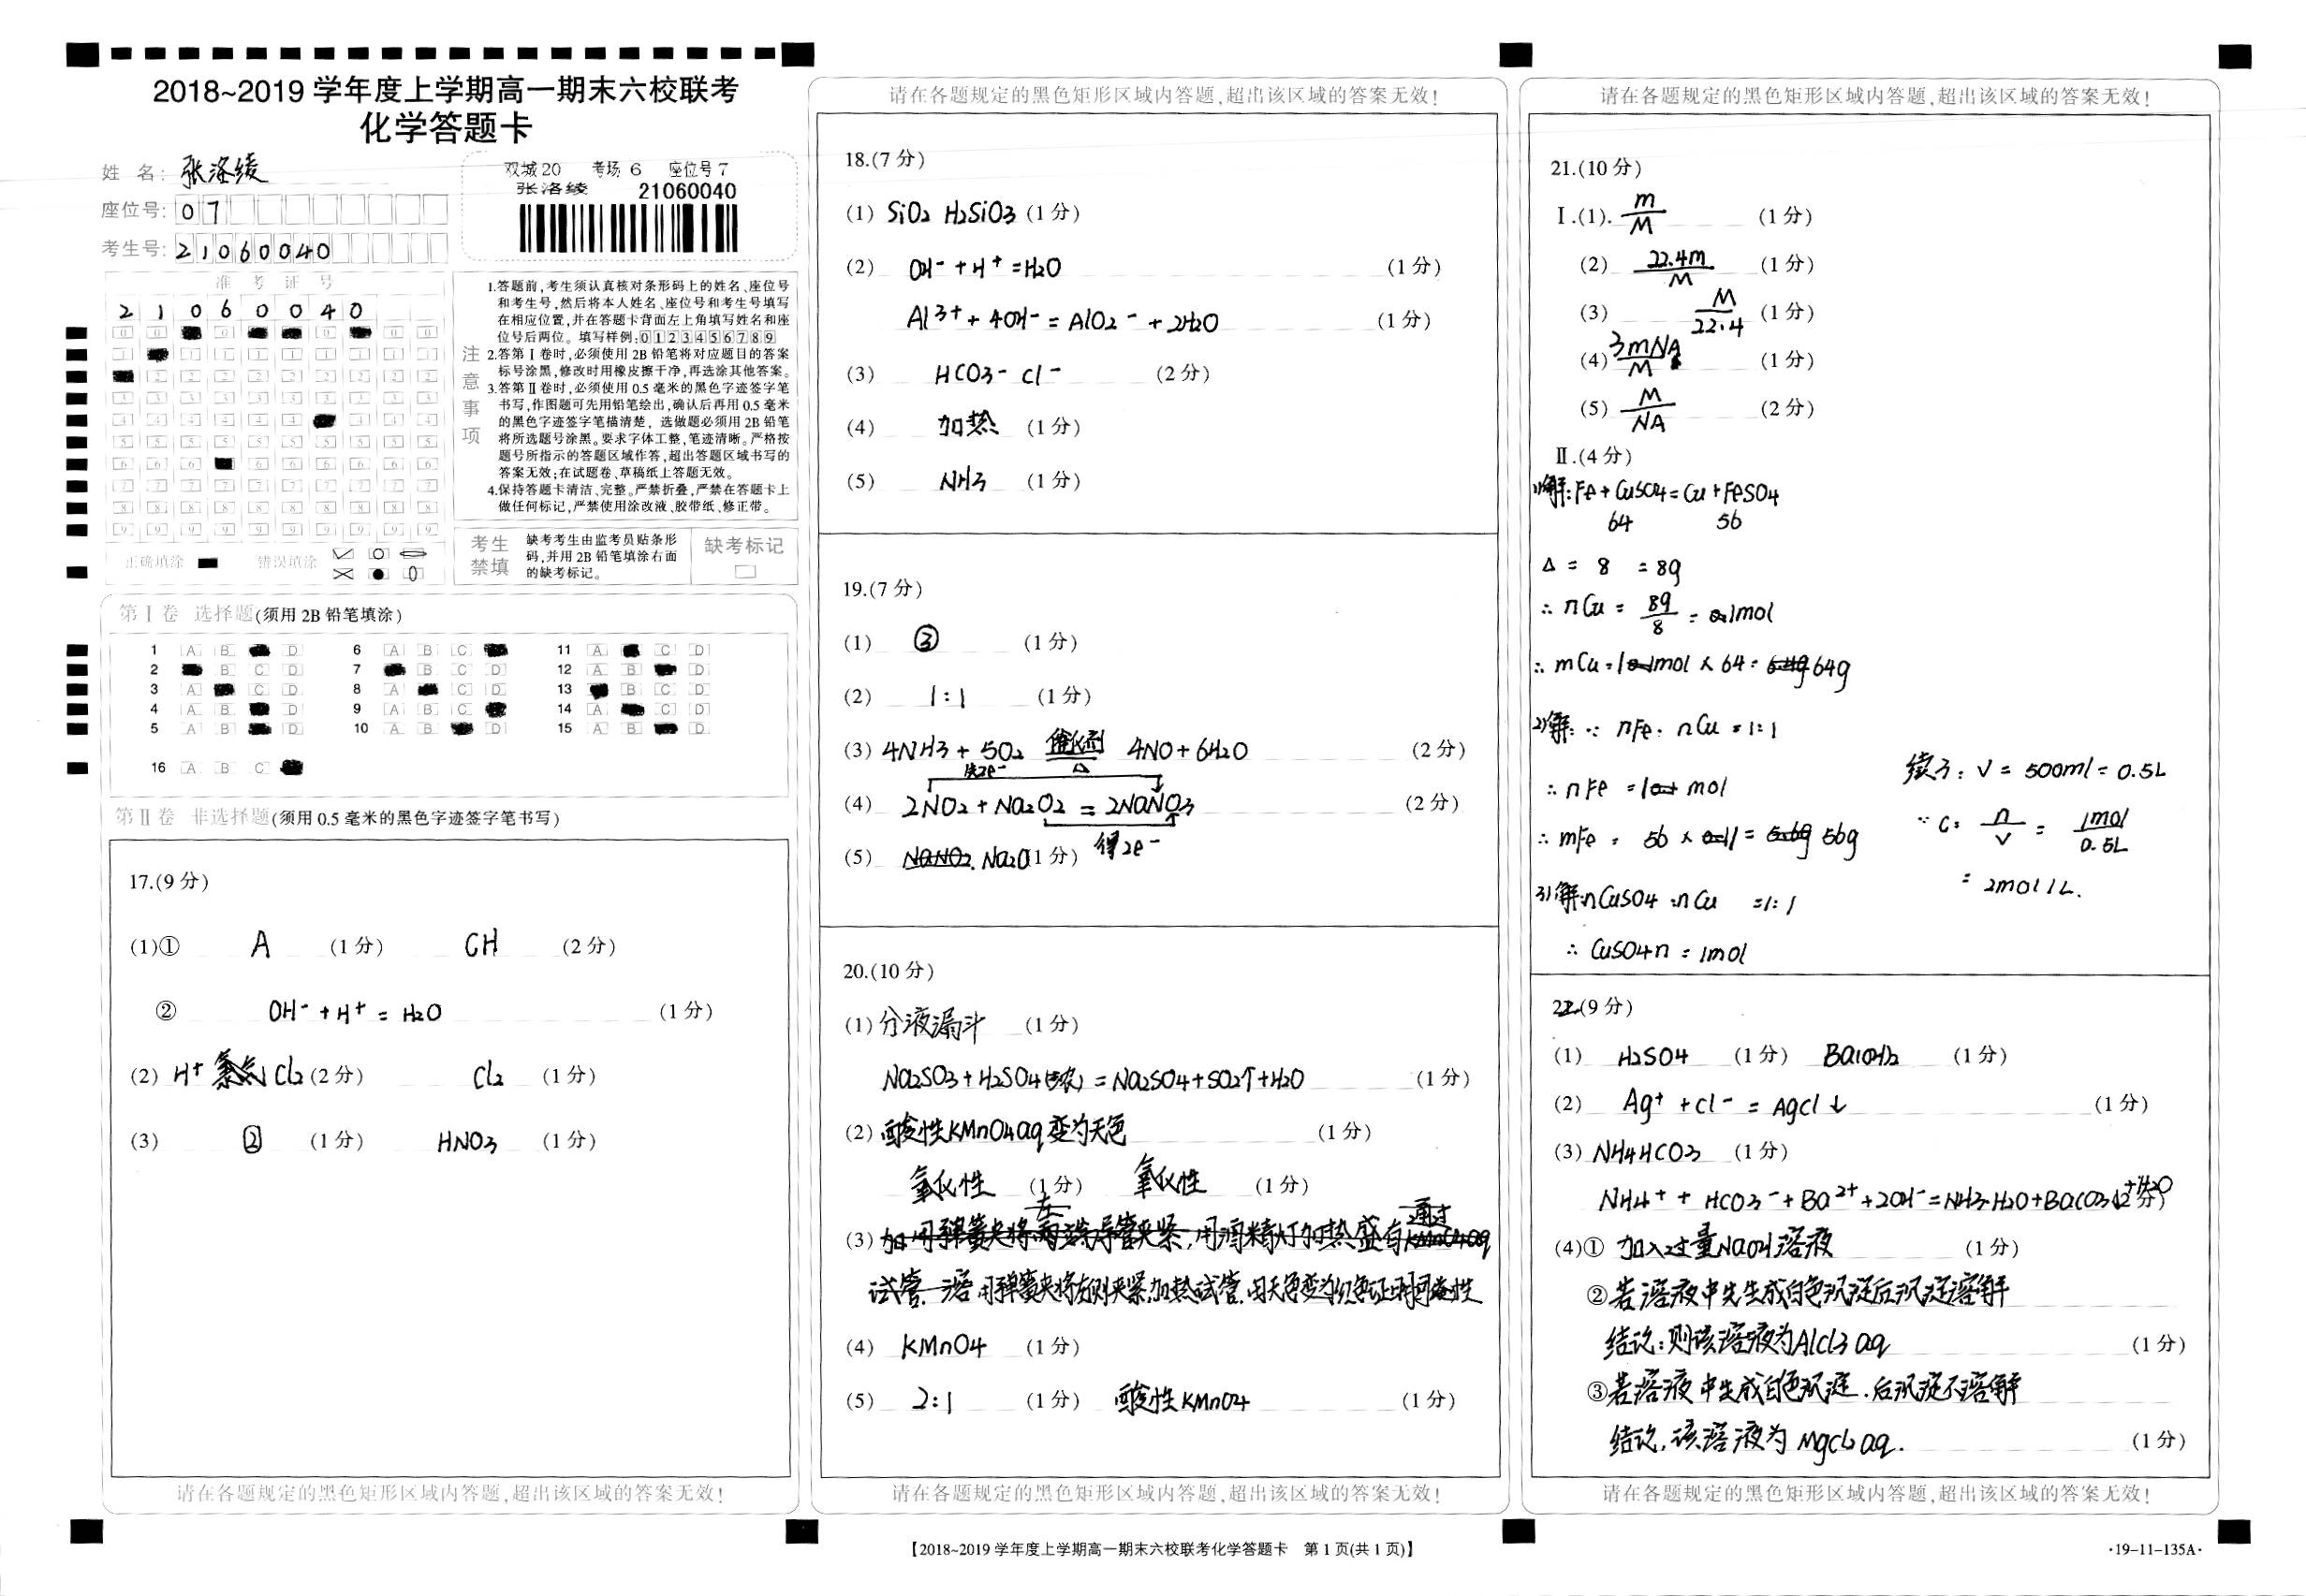 2018~2019 学年度上学期高一期末六校联考
化学答题卡
姓 名: 张洛绫
座位号: 07
考生号: 21060040
双城20 考场 6 座位号 7
张洛绫 21060040
准 考 证 号
2 1 0 6 0 0 4 0
注意事项
1.答题前,考生须认真核对条形码上的姓名、座位号
和考生号,然后将本人姓名、座位号和考生号填写
在相应位置,并在答题卡背面左上角填写姓名和座
位号后两位。填写样例:0123456789
2.答第Ⅰ卷时,必须使用2B铅笔将对应题目的答案
标号涂黑,修改时用橡皮擦干净,再选涂其他答案。
3.答第Ⅱ卷时,必须使用0.5毫米的黑色字迹签字笔
书写,作图题可先用铅笔绘出,确认后再用0.5毫米
的黑色字迹签字笔描清楚,选做题必须用2B铅笔
将所选题号涂黑。要求字体工整,笔迹清晰。严格按
题号所指示的答题区域作答,超出答题区域书写的
答案无效;在试题卷、草稿纸上答题无效。
4.保持答题卡清洁、完整。严禁折叠,严禁在答题卡上
做任何标记,严禁使用涂改液、胶带纸、修正带。
正确填涂 错误填涂
考生禁填
缺考考生由监考员贴条形
码,并用2B铅笔填涂右面
的缺考标记。
缺考标记
第Ⅰ卷 选择题(须用2B铅笔填涂)
1 A B D 6 A B C 11 A C D
2 B C D 7 B C D 12 A B D
3 A C D 8 A C D 13 B C D
4 A B D 9 A B C 14 A C D
5 A B D 10 A B D 15 A B D
16 A B C
第Ⅱ卷 非选择题(须用0.5毫米的黑色字迹签字笔书写)
17.(9分)
(1)① A (1分) CH (2分)
② OH⁻+H⁺=H₂O (1分)
(2) H⁺ 氯气 Cl₂ (2分) Cl₂ (1分)
(3) ② (1分) HNO₃ (1分)
请在各题规定的黑色矩形区域内答题,超出该区域的答案无效!
请在各题规定的黑色矩形区域内答题,超出该区域的答案无效!
18.(7分)
(1) SiO₂ H₂SiO₃ (1分)
(2) OH⁻+H⁺=H₂O (1分)
Al³⁺+4OH⁻=AlO₂⁻+2H₂O (1分)
(3) HCO₃⁻ Cl⁻ (2分)
(4) 加热 (1分)
(5) NH₃ (1分)
19.(7分)
(1) ③ (1分)
(2) 1:1 (1分)
(3) 4NH₃+5O₂ 催化剂 △ 4NO+6H₂O (2分)
失2e⁻
(4) 2NO₂+Na₂O₂=2NaNO₃ (2分)
得2e⁻
(5) NaNO₂. Na₂O (1分)
20.(10分)
(1) 分液漏斗 (1分)
Na₂SO₃+H₂SO₄(浓)=Na₂SO₄+SO₂↑+H₂O (1分)
(2) 酸性KMnO₄aq变为无色 (1分)
氧化性 (1分) 氧化性 (1分)
左 通过
(3) 用弹簧夹将导管夹紧,用酒精灯加热盛有KMnO₄aq
试管. 用弹簧夹将左侧夹紧,加热试管,由无色变为红色证明
(4) KMnO₄ (1分)
(5) 2:1 (1分) 酸性KMnO₄ (1分)
请在各题规定的黑色矩形区域内答题,超出该区域的答案无效!
【2018~2019学年度上学期高一期末六校联考化学答题卡 第1页(共1页)】
请在各题规定的黑色矩形区域内答题,超出该区域的答案无效!
21.(10分)
Ⅰ.(1). m/M (1分)
(2) 22.4m/M (1分)
(3) M/22.4 (1分)
(4) 3mNA/M (1分)
(5) M/NA (2分)
Ⅱ.(4分)
1)解:Fe+CuSO₄=Cu+FeSO₄
64 56
Δ = 8 = 8g
∴ nCu = 8g/8 = 1mol
∴ mCu=1mol×64=64g
2)解:∵ nFe:nCu=1:1
∴ nFe =1mol
∴ mFe = 56×1=56g
3)解:nCuSO₄:nCu =1:1
∴ CuSO₄n=1mol
续3: V=500ml=0.5L
∵ C= n/V = 1mol/0.5L
= 2mol/L.
22.(9分)
(1) H₂SO₄ (1分) Ba(OH)₂ (1分)
(2) Ag⁺+Cl⁻=AgCl↓ (1分)
(3) NH₄HCO₃ (1分)
NH₄⁺+HCO₃⁻+Ba²⁺+2OH⁻=NH₃·H₂O+BaCO₃↓+H₂O (2分)
(4)① 加入过量NaOH溶液 (1分)
②若溶液中先生成白色沉淀后沉淀溶解
结论:则该溶液为AlCl₃aq (1分)
③若溶液中生成白色沉淀.后沉淀不溶解
结论,该溶液为MgCl₂aq. (1分)
请在各题规定的黑色矩形区域内答题,超出该区域的答案无效!
·19-11-135A·